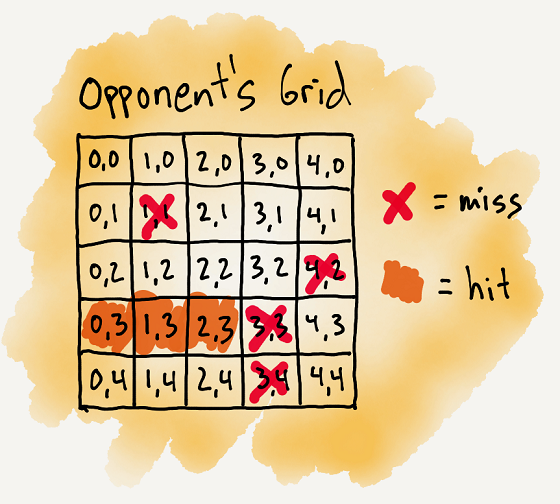 Opponent's Grid
0,0 1,0 2,0 3,0 4,0
0,1 1,1 2,1 3,1 4,1
= miss
0,2 1,2 2,2 3,2 4,2
= hit
0,3 1,3 2,3 3,3 4,3
0,4 1,4 2,4 3,4 4,4